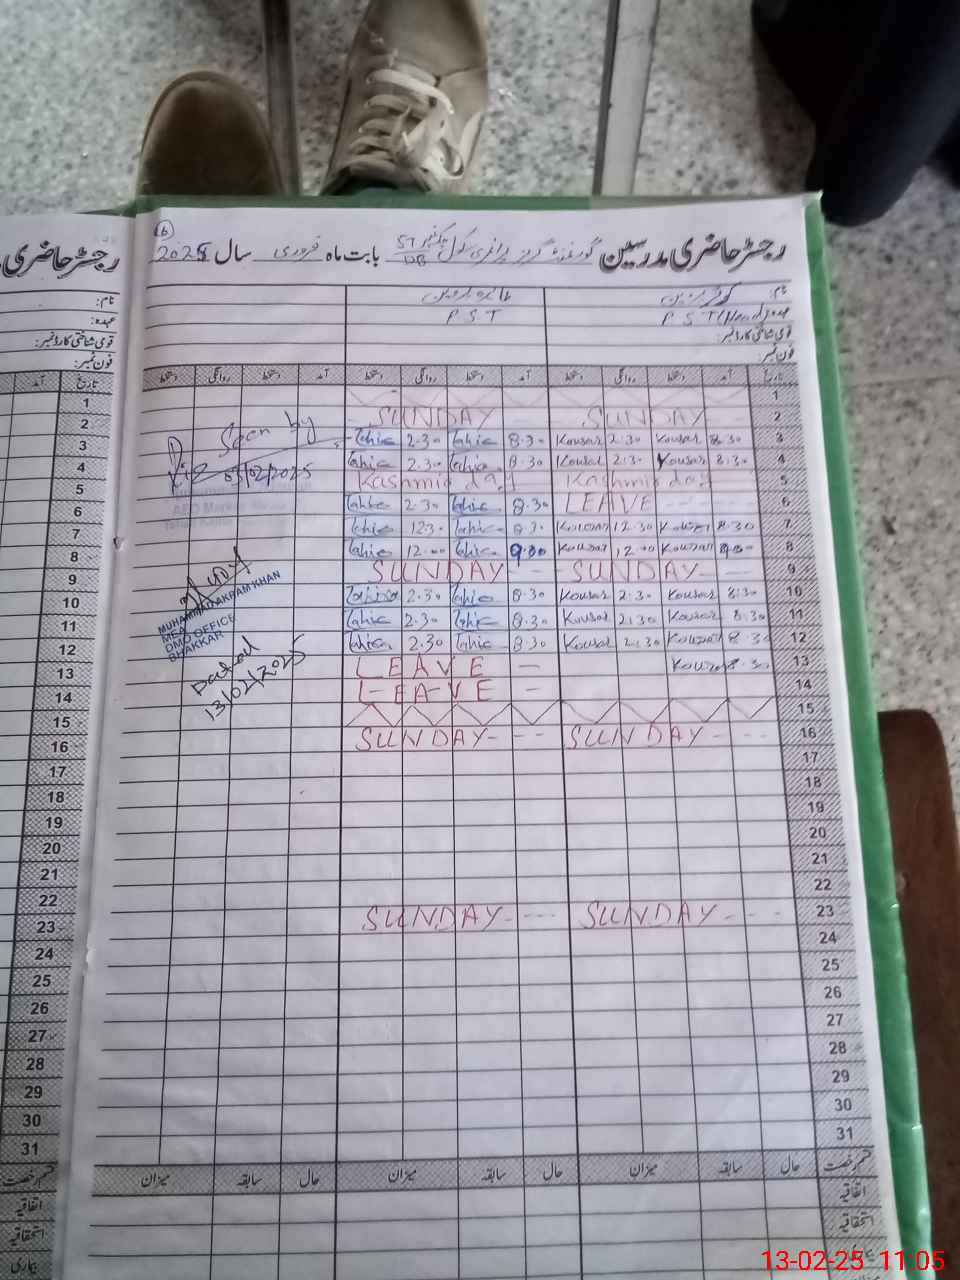 رجسٹر حاضری مدرسین گورنمنٹ گرلز پرائمری سکول چک نمبر 57 DB بابت ماہ فروری سال 2025
نام:
عہدہ: P S T (Head) P S T
قومی شناختی کارڈ نمبر:
فون نمبر:
تاریخ آمد دستخط روانگی دستخط آمد دستخط روانگی دستخط آمد دستخط روانگی دستخط
1
2 SUNDAY SUNDAY
3 8:30 Kousar 2:30 Kousar 8.30 2.30
4 8:30 Kousar 2:30 Kousar 8.30 2.30
5 Kashmir day Kashmir day
6 LEAVE 8.30 2.30
7 8.30 Kousar 12.30 Kousar 12.30
8 9.00 Kousar 12.00 Kousar 9.00 12.00
9 SUNDAY SUNDAY
10 8:30 Kousar 2:30 Kousar 8.30 2.30
11 8:30 Kousar 2:30 Kousar 8.30 2.30
12 8.30 Kousar 2:30 Kousar 8.30 2.30
13 8.30 Kousar LEAVE
14 LEAVE
15
16 SUNDAY SUNDAY
17
18
19
20
21
22
23 SUNDAY SUNDAY
24
25
26
27
28
29
30
31
قسم رخصت حال سابقہ میزان حال سابقہ میزان حال سابقہ میزان
اتفاقیہ
استحقاقیہ
Seen by
03/02/2025
MUHAMMAD AKRAM KHAN
MEA
DMO OFFICE
BHAKKAR
Dated
13/02/2025
رجسٹر حاضری
نام:
عہدہ:
قومی شناختی کارڈ نمبر:
فون نمبر:
تاریخ آمد
1
2
3
4
5
6
7
8
9
10
11
12
13
14
15
16
17
18
19
20
21
22
23
24
25
26
27
28
29
30
31
قسم رخصت
اتفاقیہ
استحقاقیہ
بیماری
13-02-25 11:05